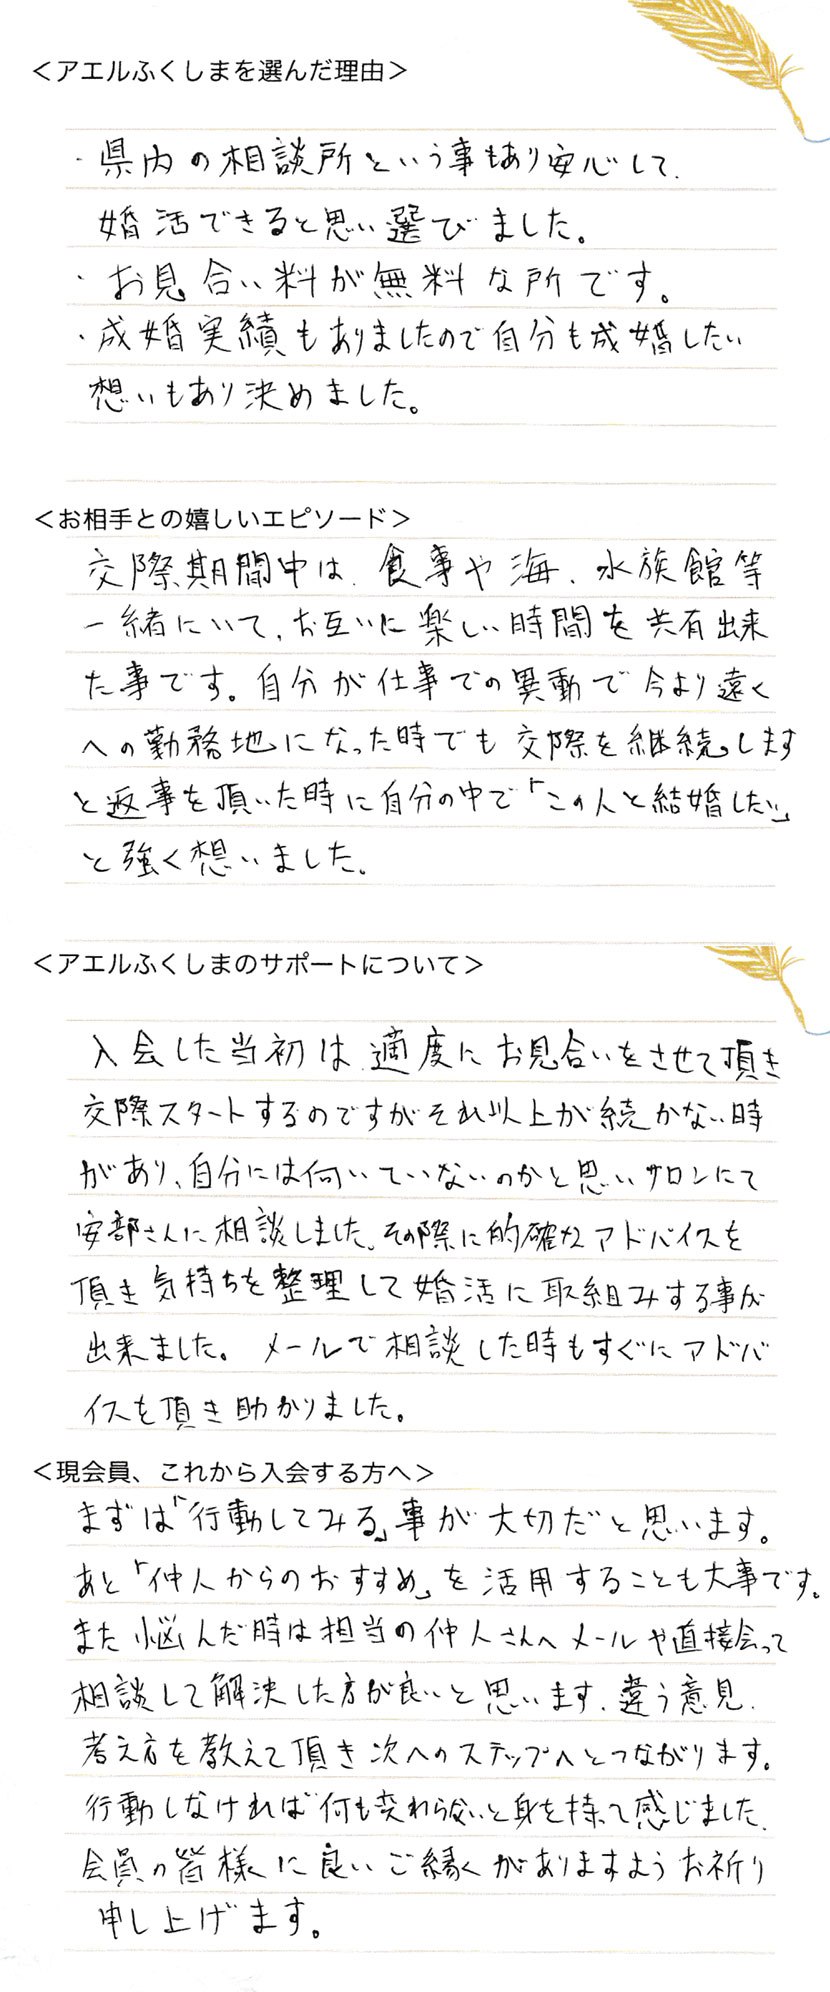 ＜アエルふくしまを選んだ理由＞
・県内の相談所という事もあり安心して、
婚活できると思い選びました。
・お見合い料が無料な所です。
・成婚実績もありましたので自分も成婚したい
想いもあり決めました。
＜お相手との嬉しいエピソード＞
交際期間中は、食事や海、水族館等
一緒にいて、お互いに楽しい時間を共有出来
た事です。自分が仕事での異動で今より遠く
への勤務地になった時でも交際を継続します
と返事を頂いた時に自分の中で「この人と結婚したい」
と強く想いました。
＜アエルふくしまのサポートについて＞
入会した当初は適度にお見合いをさせて頂き
交際スタートするのですがそれ以上が続かない時
があり、自分には向いていないのかと思いサロンにて
安部さんに相談しました。その際に的確なアドバイスを
頂き気持ちを整理して婚活に取組みする事が
出来ました。メールで相談した時もすぐにアドバ
イスを頂き助かりました。
＜現会員、これから入会する方へ＞
まずは「行動してみる」事が大切だと思います。
あと「仲人からのおすすめ」を活用することも大事です。
また悩んだ時は担当の仲人さんへメールや直接会って
相談して解決した方が良いと思います、違う意見、
考え方を教えて頂き次へのステップへとつながります。
行動しなければ何も変わらないと身を持って感じました、
会員の皆様に良いご縁がありますようお祈り
申し上げます。